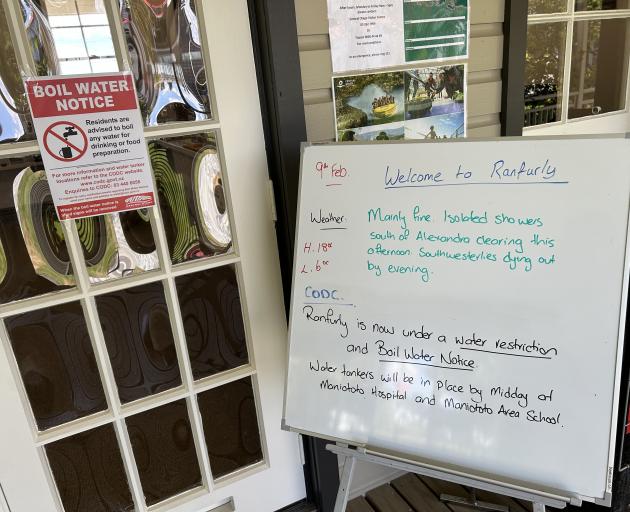 BOIL WATER
NOTICE
Residents are
advised to boil
any water for
drinking or food
preparation.
For more information and water tanker
locations refer to the CODC website.
www.codc.govt.nz
Enquiries to CODC: 03 440 0056
When the boil water notice is
lifted signs will be removed
9th Feb.
Welcome to Ranfurly
Weather:
Mainly fine. Isolated showers
south of Alexandra clearing this
afternoon. Southwesterlies dying out
by evening.
H. 18°c
L. 6°c
CODC.
Ranfurly is now under a water restriction
and Boil Water Notice.
Water tankers will be in place by Midday at
Maniototo Hospital and Maniototo Area School.